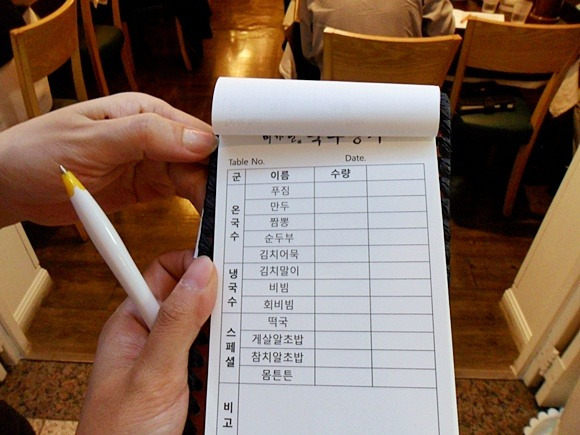 Table No. Date.
군 이름 수량
온국수 푸짐
만두
짬뽕
순두부
김치어묵
냉국수 김치말이
비빔
회비빔
스페셜 떡국
게살알초밥
참치알초밥
몸튼튼
비고